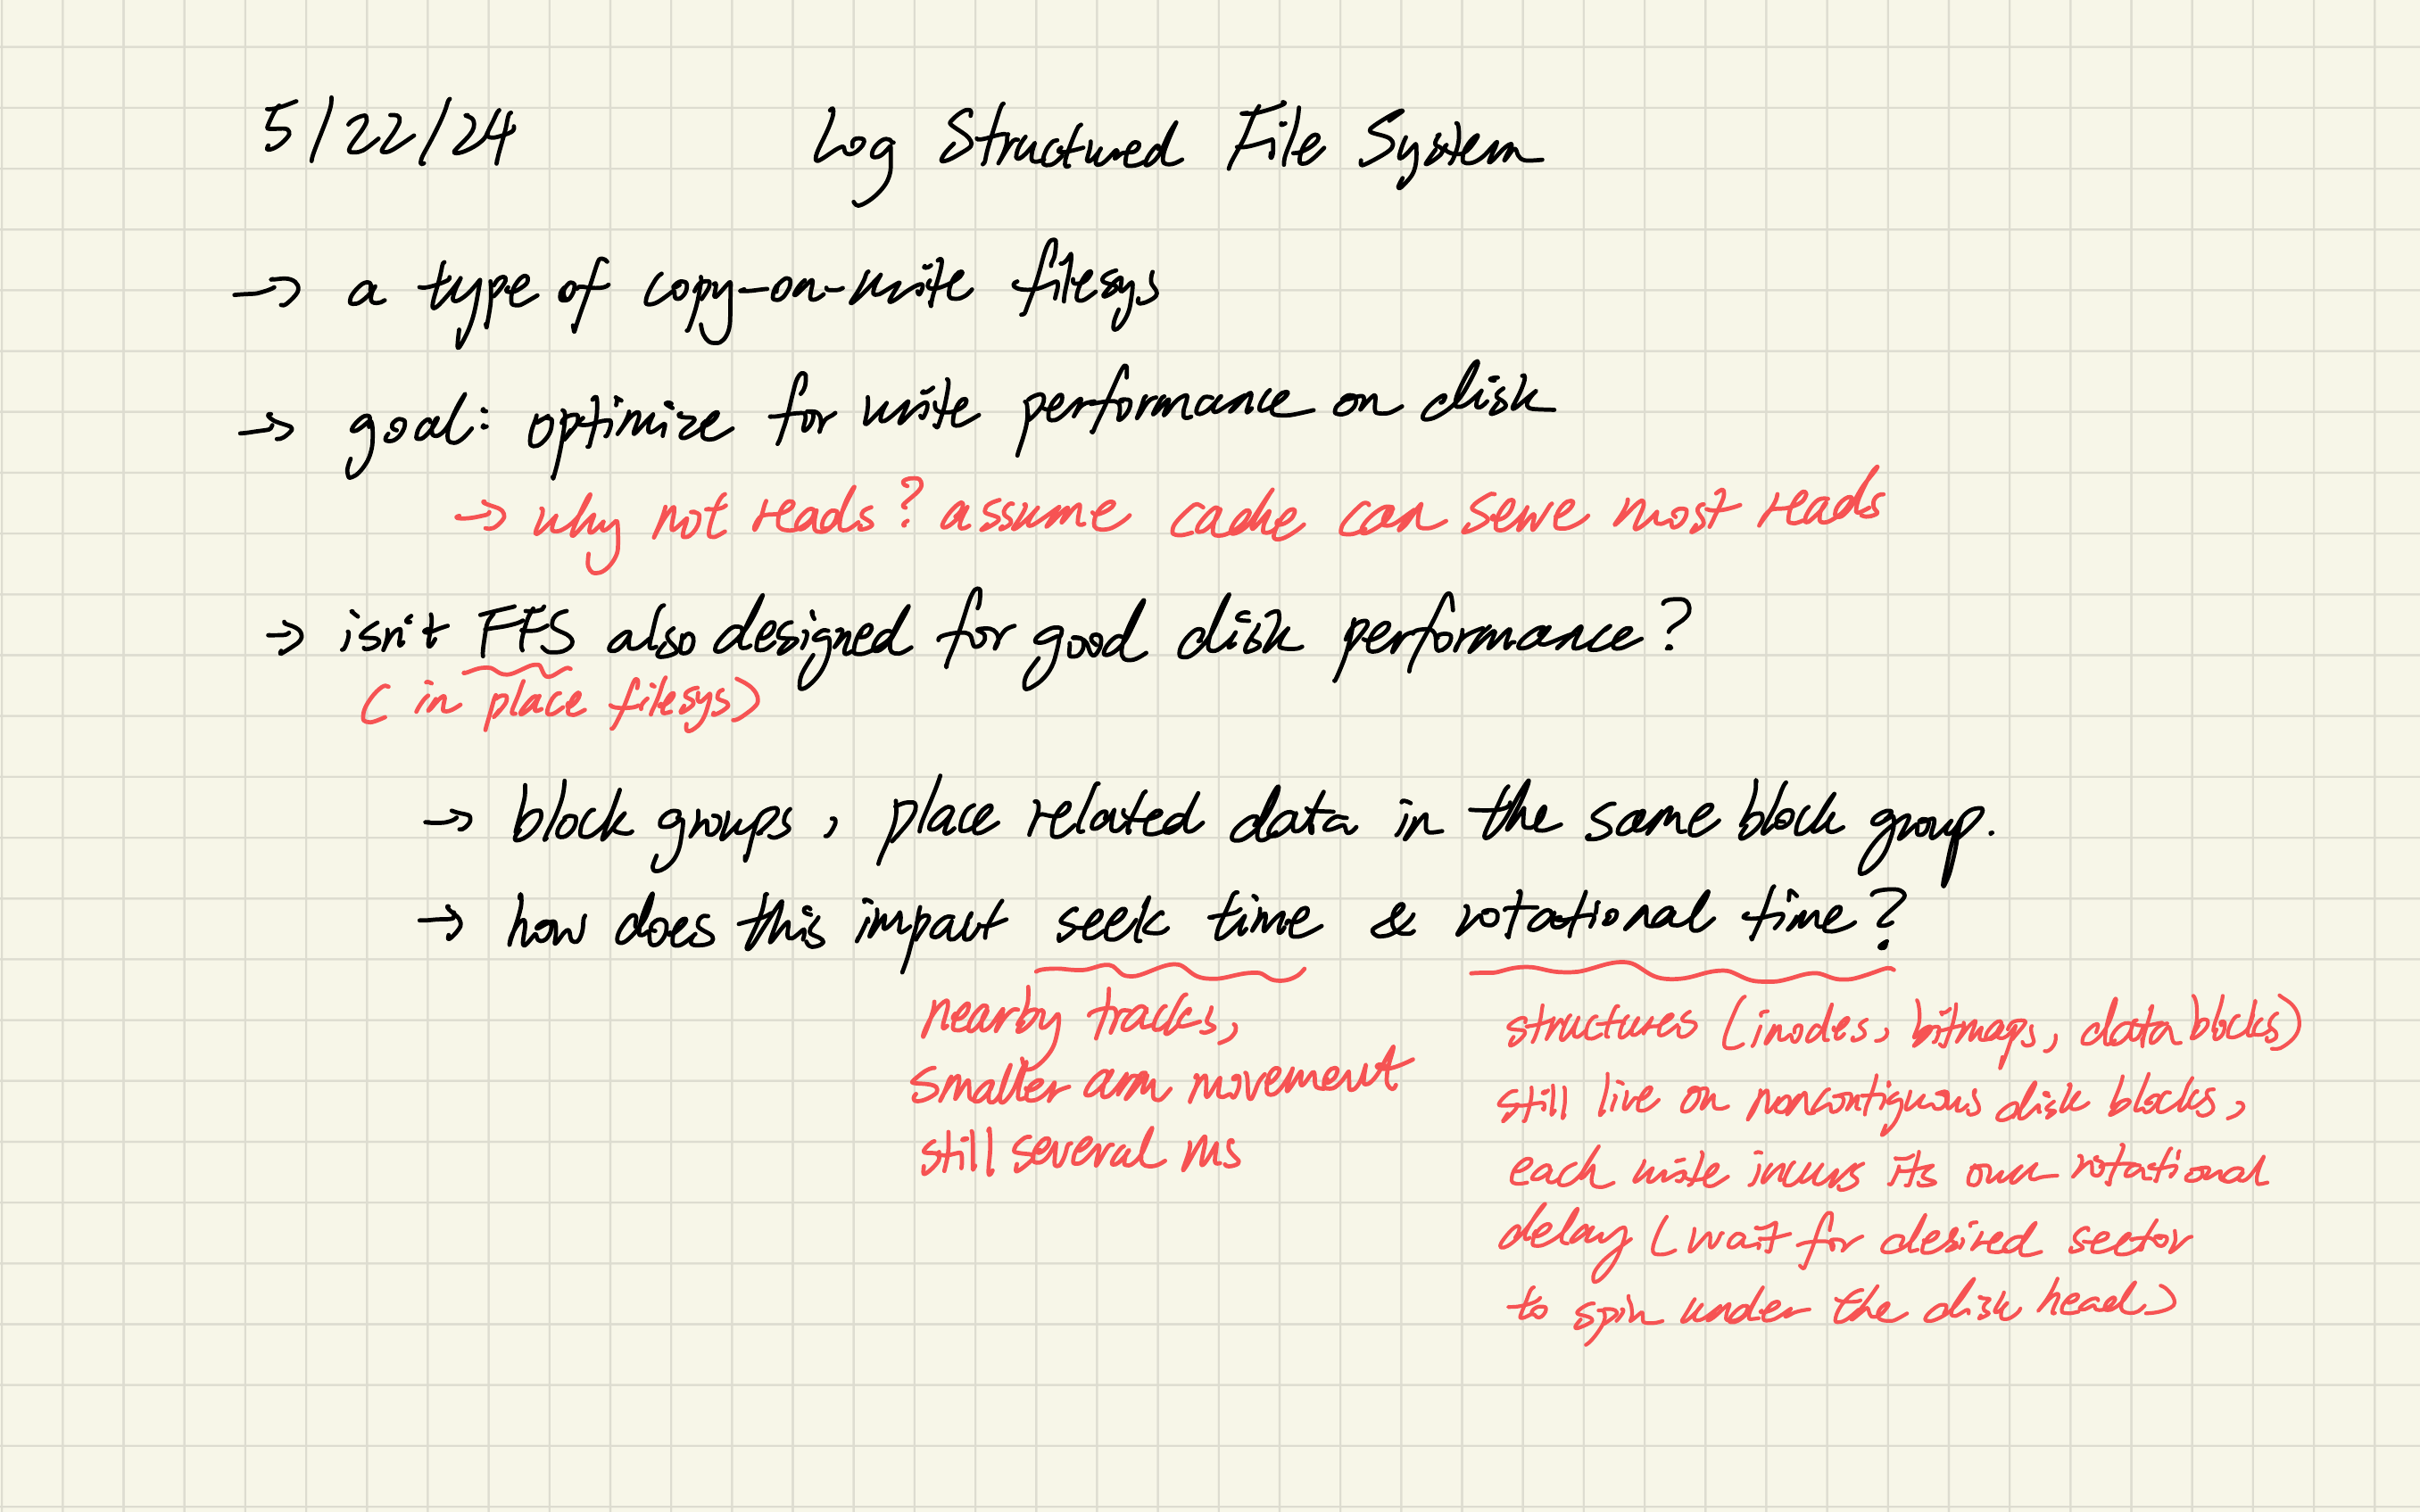 5/22/24 Log Structured File System
→ a type of copy-on-write filesys
→ goal: optimize for write performance on disk
→ why not reads? assume cache can serve most reads
→ isn't FFS also designed for good disk performance?
(in place filesys)
→ block groups, place related data in the same block group.
→ how does this impact seek time & rotational time?
nearby tracks,
smaller arm movement
still several ms
structures (inodes, bitmaps, data blocks)
still live on noncontiguous disk blocks,
each write incurs its own rotational
delay (wait for desired sector
to spin under the disk head)